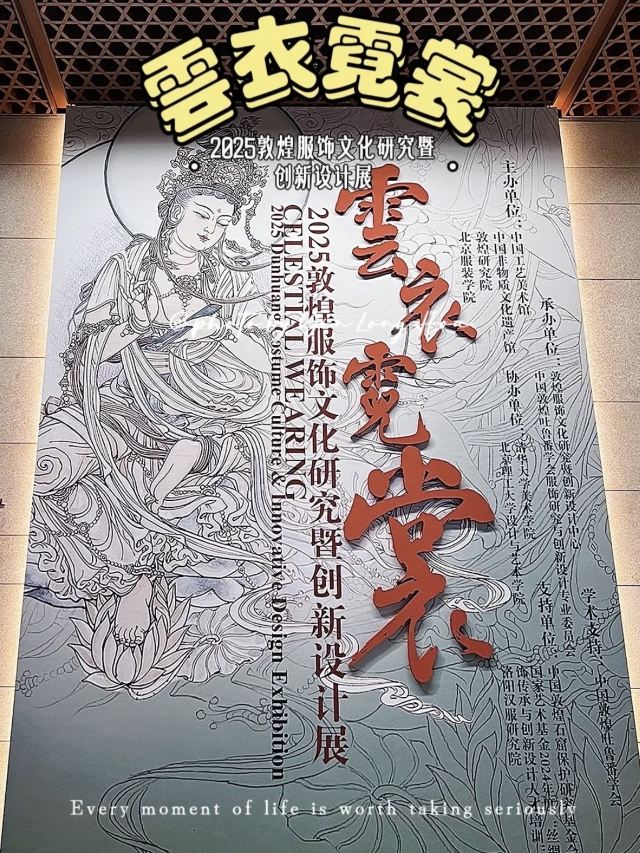 雲衣霓裳
2025敦煌服饰文化研究暨
创新设计展
雲衣霓裳
2025敦煌服饰文化研究暨创新设计展
CELESTIAL WEARING
2025 Dunhuang Costume Culture & Innovative Design Exhibition
主办单位：中国工艺美术馆
中国非物质文化遗产馆
敦煌研究院
北京服装学院
承办单位：敦煌服饰文化研究暨创新设计中心
中国敦煌吐鲁番学会服饰研究与创新设计专业委员会
协办单位：清华大学美术学院
北京理工大学设计与艺术学院
支持单位：中国敦煌石窟保护研究基金会
国家艺术基金2024年
饰传承与创新设计人才培训
洛阳汉服研究院
学术支持：中国敦煌吐鲁番学会
Every moment of life is worth taking seriously